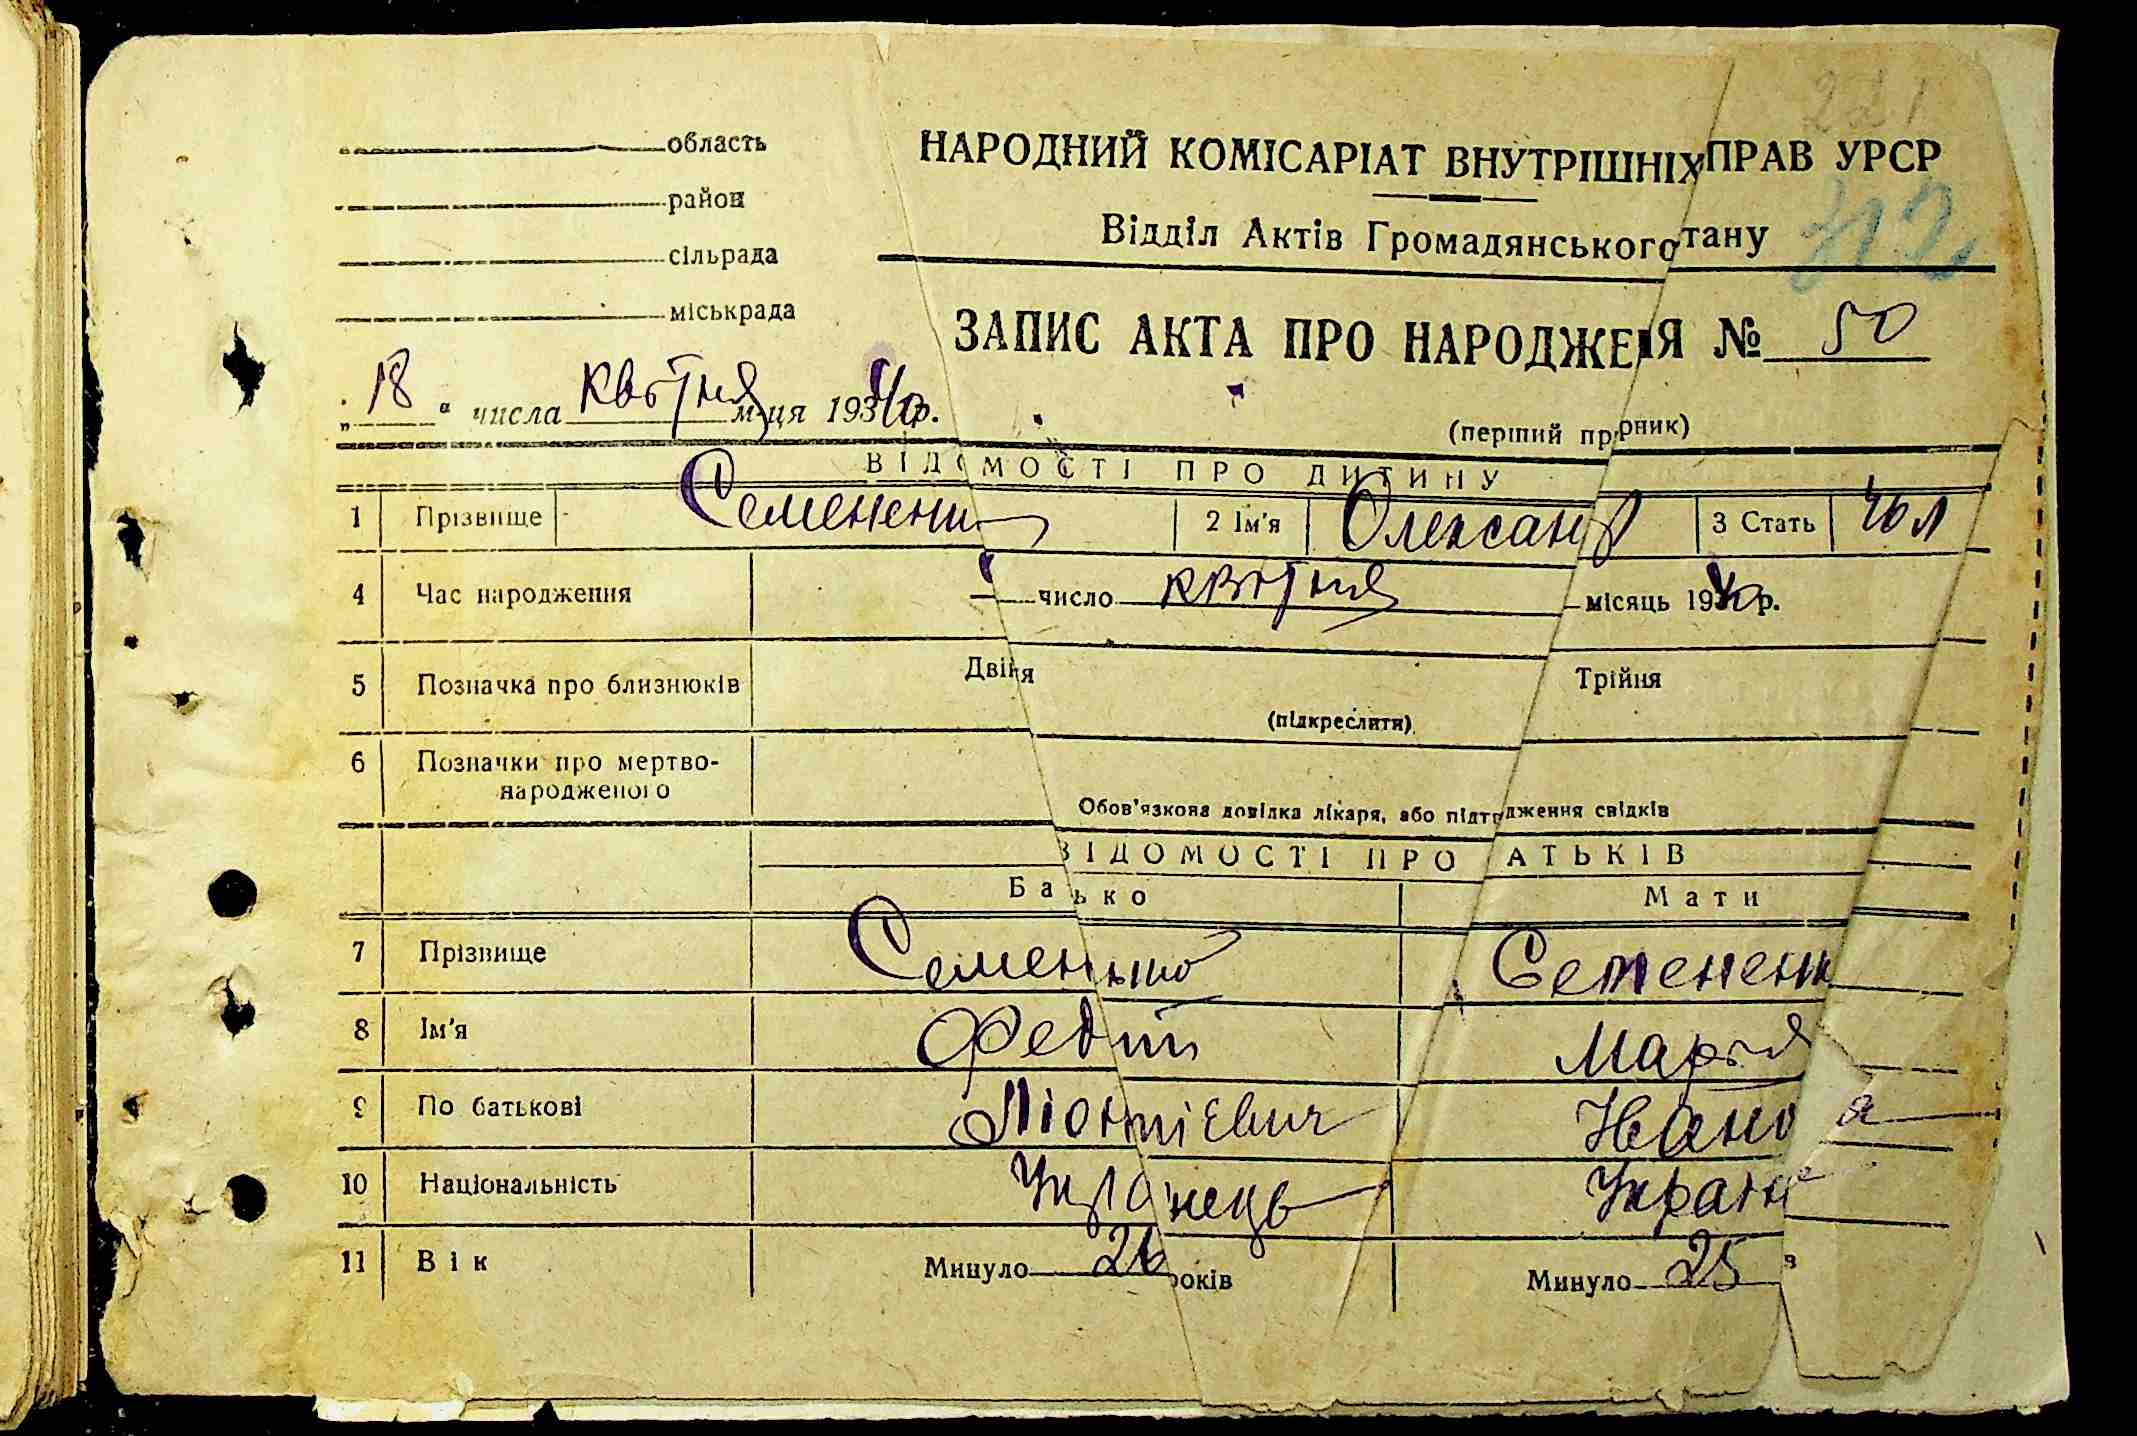 221
область
НАРОДНИЙ КОМІСАРІАТ ВНУТРІШНІХ ПРАВ УРСР
район
312
Відділ Актів Громадянського тану
сільрада
міськрада
ЗАПИС АКТА ПРО НАРОДЖЕ Я № 50
„18“ числа квітня м-ця 1940 р.
(перший пр рник)
ВІДОМОСТІ ПРО ДИТИНУ
1 Прізвище Семененко 2 Ім'я Олександр 3 Стать чол
4 Час народження число квітня місяць 1940 р.
5 Позначка про близнюків Двійня Трійня
(підкреслити)
6 Позначки про мертво-
народженого
Обов'язкова довідка лікаря, або підтв дження свідків
ВІДОМОСТІ ПРО АТЬКІВ
Батько Мати
7 Прізвище Семененко Семененк
8 Ім'я Федір Марія
9 По батькові Івано а
10 Національність Українець Україн
11 Вік Минуло 26 років Минуло 25 в